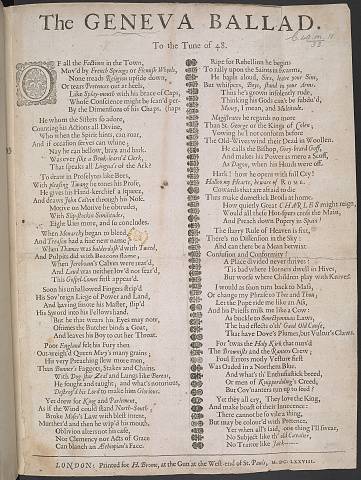 The GENEVA BALLAD.
To the Tune of 48.
OF all the Factions in the Town,
Mov'd by French Springs or Flemish Wheels,
None treads Religion upside down,
Or tears Pretences out at heels,
Like Splay-mouth with his brace of Caps,
Whose Conscience might be scan'd per-
By the Dimensions of his Chaps. (haps
He whom the Sisters so adore,
Counting his Actions all Divine,
Who when the Spirit hints, can roar,
And if occasion serves can whine;
Nay he can bellow, bray and bark.
Was ever like a Beuk-learn'd Clerk,
That speaks all Lingua's of the Ark?
To draw in Proselytes like Bees,
With pleasing Twang he tones his Prose,
He gives his Hand-kercheif a squeez,
And draws John Calvin through his Nose.
Motive on Motive he obtrudes,
With Slip-stockin Similitudes,
Eight Uses more, and so concludes.
When Monarchy began to bleed,
And Treason had a fine new name;
When Thames was balderdash'd with Tweed,
And Pulpits did with Beacons flame;
When Jeroboam's Calves were rear'd,
And Laud was neither lov'd nor fear'd,
This Gospel-Comet first appear'd.
Soon his unhallowed Fingers strip'd
His Sov'reign Liege of Power and Land,
And having smote his Master, slip'd
His Sword into his Fellows hand.
But he that wears his Eyes may note,
Oftimes the Butcher binds a Goat,
And leaves his Boy to cut her Throat.
Poor England felt his fury then
Out-weigh'd Queen Mary's many grains;
His very Preaching slew more men,
Than Bonner's Faggots, Stakes and Chains.
With Dog-star Zeal and Lungs like Boreas,
He fought and taught; and what's notorious,
Destroy'd his Lord to make him Glorious.
Yet drew for King and Parliament,
As if the Wind could stand North-South;
Broke Moses's Law with blest intent,
Murther'd and then he wip'd his mouth.
Oblivion alters not his case,
Nor Clemency nor Acts of Grace
Can blanch an Æthiopian's Face.
Ripe for Rebellion he begins
To rally up the Saints in swarms,
He bawls aloud, Sirs, leave your Sins,
But whispers, Boys, stand to your Arms.
Thus he's grown insolently rude,
Thinking his Gods can't be subdu'd,
Money, I mean, and Multitude.
Magistrates he regards no more
Than St. George or the Kings of Colen,
Vowing he'l not conform before
The Old-wives wind their Dead in Woollen.
He calls the Bishop, Grey-beard Goff,
And makes his Power as mere a Scoff,
As Dagon, when his Hands were off.
Hark! how he opens with full Cry!
Hallow my Hearts, beware of ROME.
Cowards that are afraid to die
Thus make domestick Broils at home.
How quietly Great CHARLES might reign,
Would all these Hotspurs cross the Main,
And Preach down Popery in Spain!
The starry Rule of Heaven is fixt,
There's no Dissension in the Sky:
And can there be a Mean betwixt
Confusion and Conformity?
A Place divided never thrives:
'Tis bad where Hornets dwell in Hives,
But worse where Children play with Knives.
I would as soon turn back to Mass,
Or change my Phrase to Thee and Thou;
Let the Pope ride me like an Ass,
And his Priests milk me like a Cow:
As buckle to Smectymnuan Laws,
The bad effects o'th' Good Old Cause,
That have Dove's Plumes, but Vultur's Claws.
For 'twas the Holy Kirk that nurs'd
The Brownists and the Ranters Crew;
Foul Errors motly Vesture first
Was Oaded in a Northern Blue.
And what's th' Enthusiastick breed,
Or men of Knipperdoling's Creed,
But Cov'nanters run up to seed?
Yet they all cry, They love the King,
And make boast of their Innocence:
There cannot be so vile a thing,
But may be colour'd with Pretence.
Yet when all's said, one thing I'll swear,
No Subject like th' old Cavalier,
No Traytor like Jack-
LONDON: Printed for H. Brome, at the Gun at the West-end of St. Pauls, M.DC.LXXVIII.